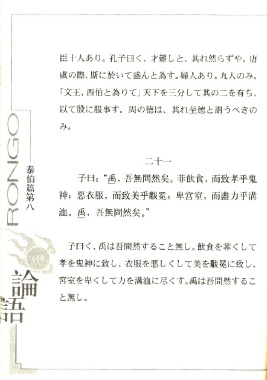 臣十人あり。孔子曰く、才難しと、其れ然らずや。唐
虞の際、斯に於いて盛んと為す。婦人あり。九人のみ。
「文王、西伯と為りて」天下を三分して其の二を有ち、
以て殷に服事す。周の徳は、其れ至徳と謂うべきの
み。
二十一
子曰："禹，吾無間然矣。菲飲食，而致孝乎鬼
神；惡衣服，而致美乎黻冕；卑宮室，而盡力乎溝
洫。禹，吾無間然矣。"
子曰く、禹は吾間然すること無し。飲食を菲くして
孝を鬼神に致し、衣服を悪しくして美を黻冕に致し、
宮室を卑くして力を溝洫に尽くす。禹は吾間然するこ
と無し。
RONGO
泰伯篇第八
論語